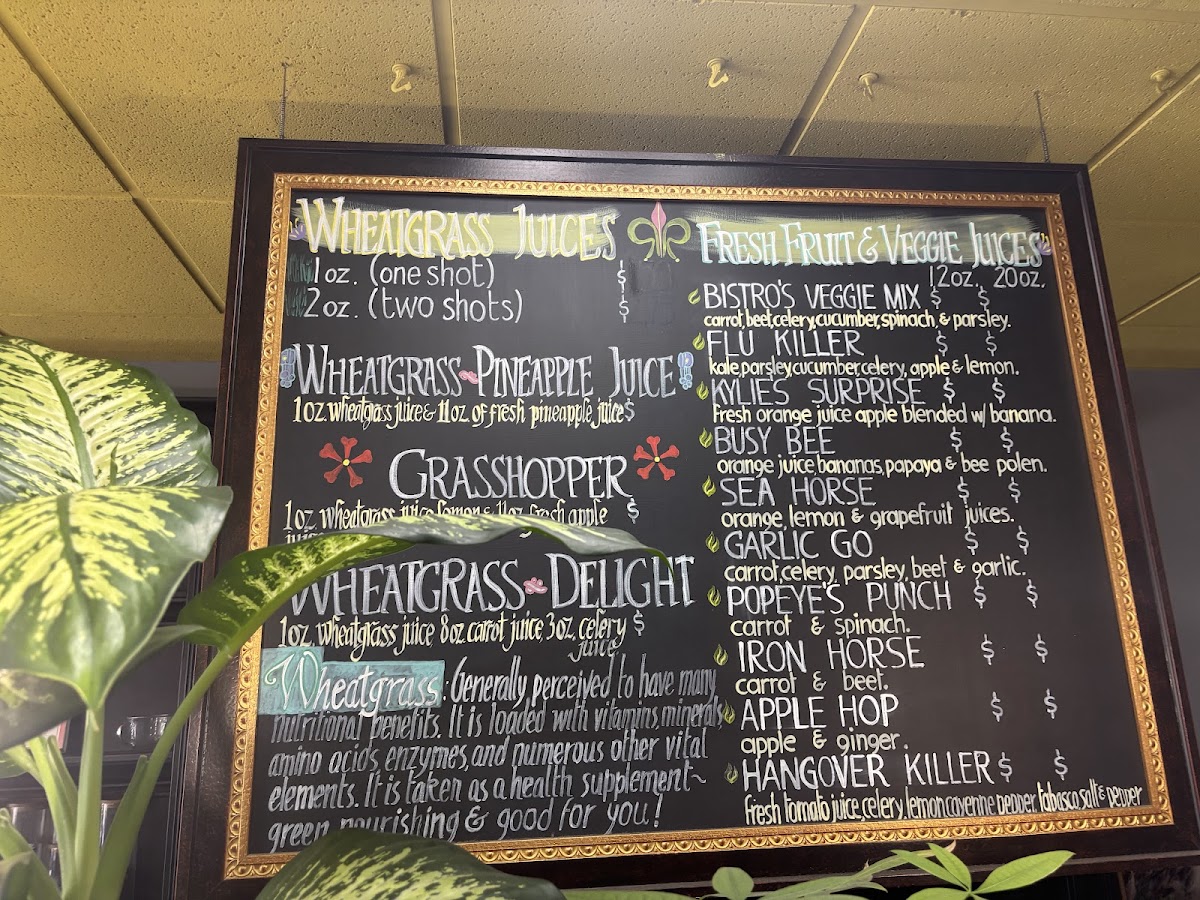 WHEATGRASS JUICES
1 oz. (one shot) $
2 oz. (two shots) $
WHEATGRASS PINEAPPLE JUICE
1 oz. wheatgrass juice & 11 oz. of fresh pineapple juice $
GRASSHOPPER
1 oz. wheatgrass juice lemon & 11 oz. fresh apple $
WHEATGRASS DELIGHT
1 oz. wheatgrass juice 8 oz carrot juice, 3 oz. celery $
juice
Wheatgrass: Generally perceived to have many
nutritional benefits. It is loaded with vitamins, minerals,
amino acids, enzymes, and numerous other vital
elements. It is taken as a health supplement~
green, nourishing & good for you!
FRESH FRUIT & VEGGIE JUICES
12oz. 20oz.
BISTRO'S VEGGIE MIX $ $
carrot, beet, celery, cucumber, spinach, & parsley.
FLU KILLER $ $
kale, parsley, cucumber, celery, apple & lemon.
KYLIE'S SURPRISE $ $
fresh orange juice apple blended w/ banana.
BUSY BEE $ $
orange juice, bananas, papaya & bee polen.
SEA HORSE $ $
orange, lemon & grapefruit juices.
GARLIC GO $ $
carrot, celery, parsley, beet & garlic.
POPEYE'S PUNCH $ $
carrot & spinach.
IRON HORSE $ $
carrot & beet.
APPLE HOP $ $
apple & ginger.
HANGOVER KILLER $ $
fresh tomato juice, celery, lemon, cayenne pepper, tabasco, salt & pepper